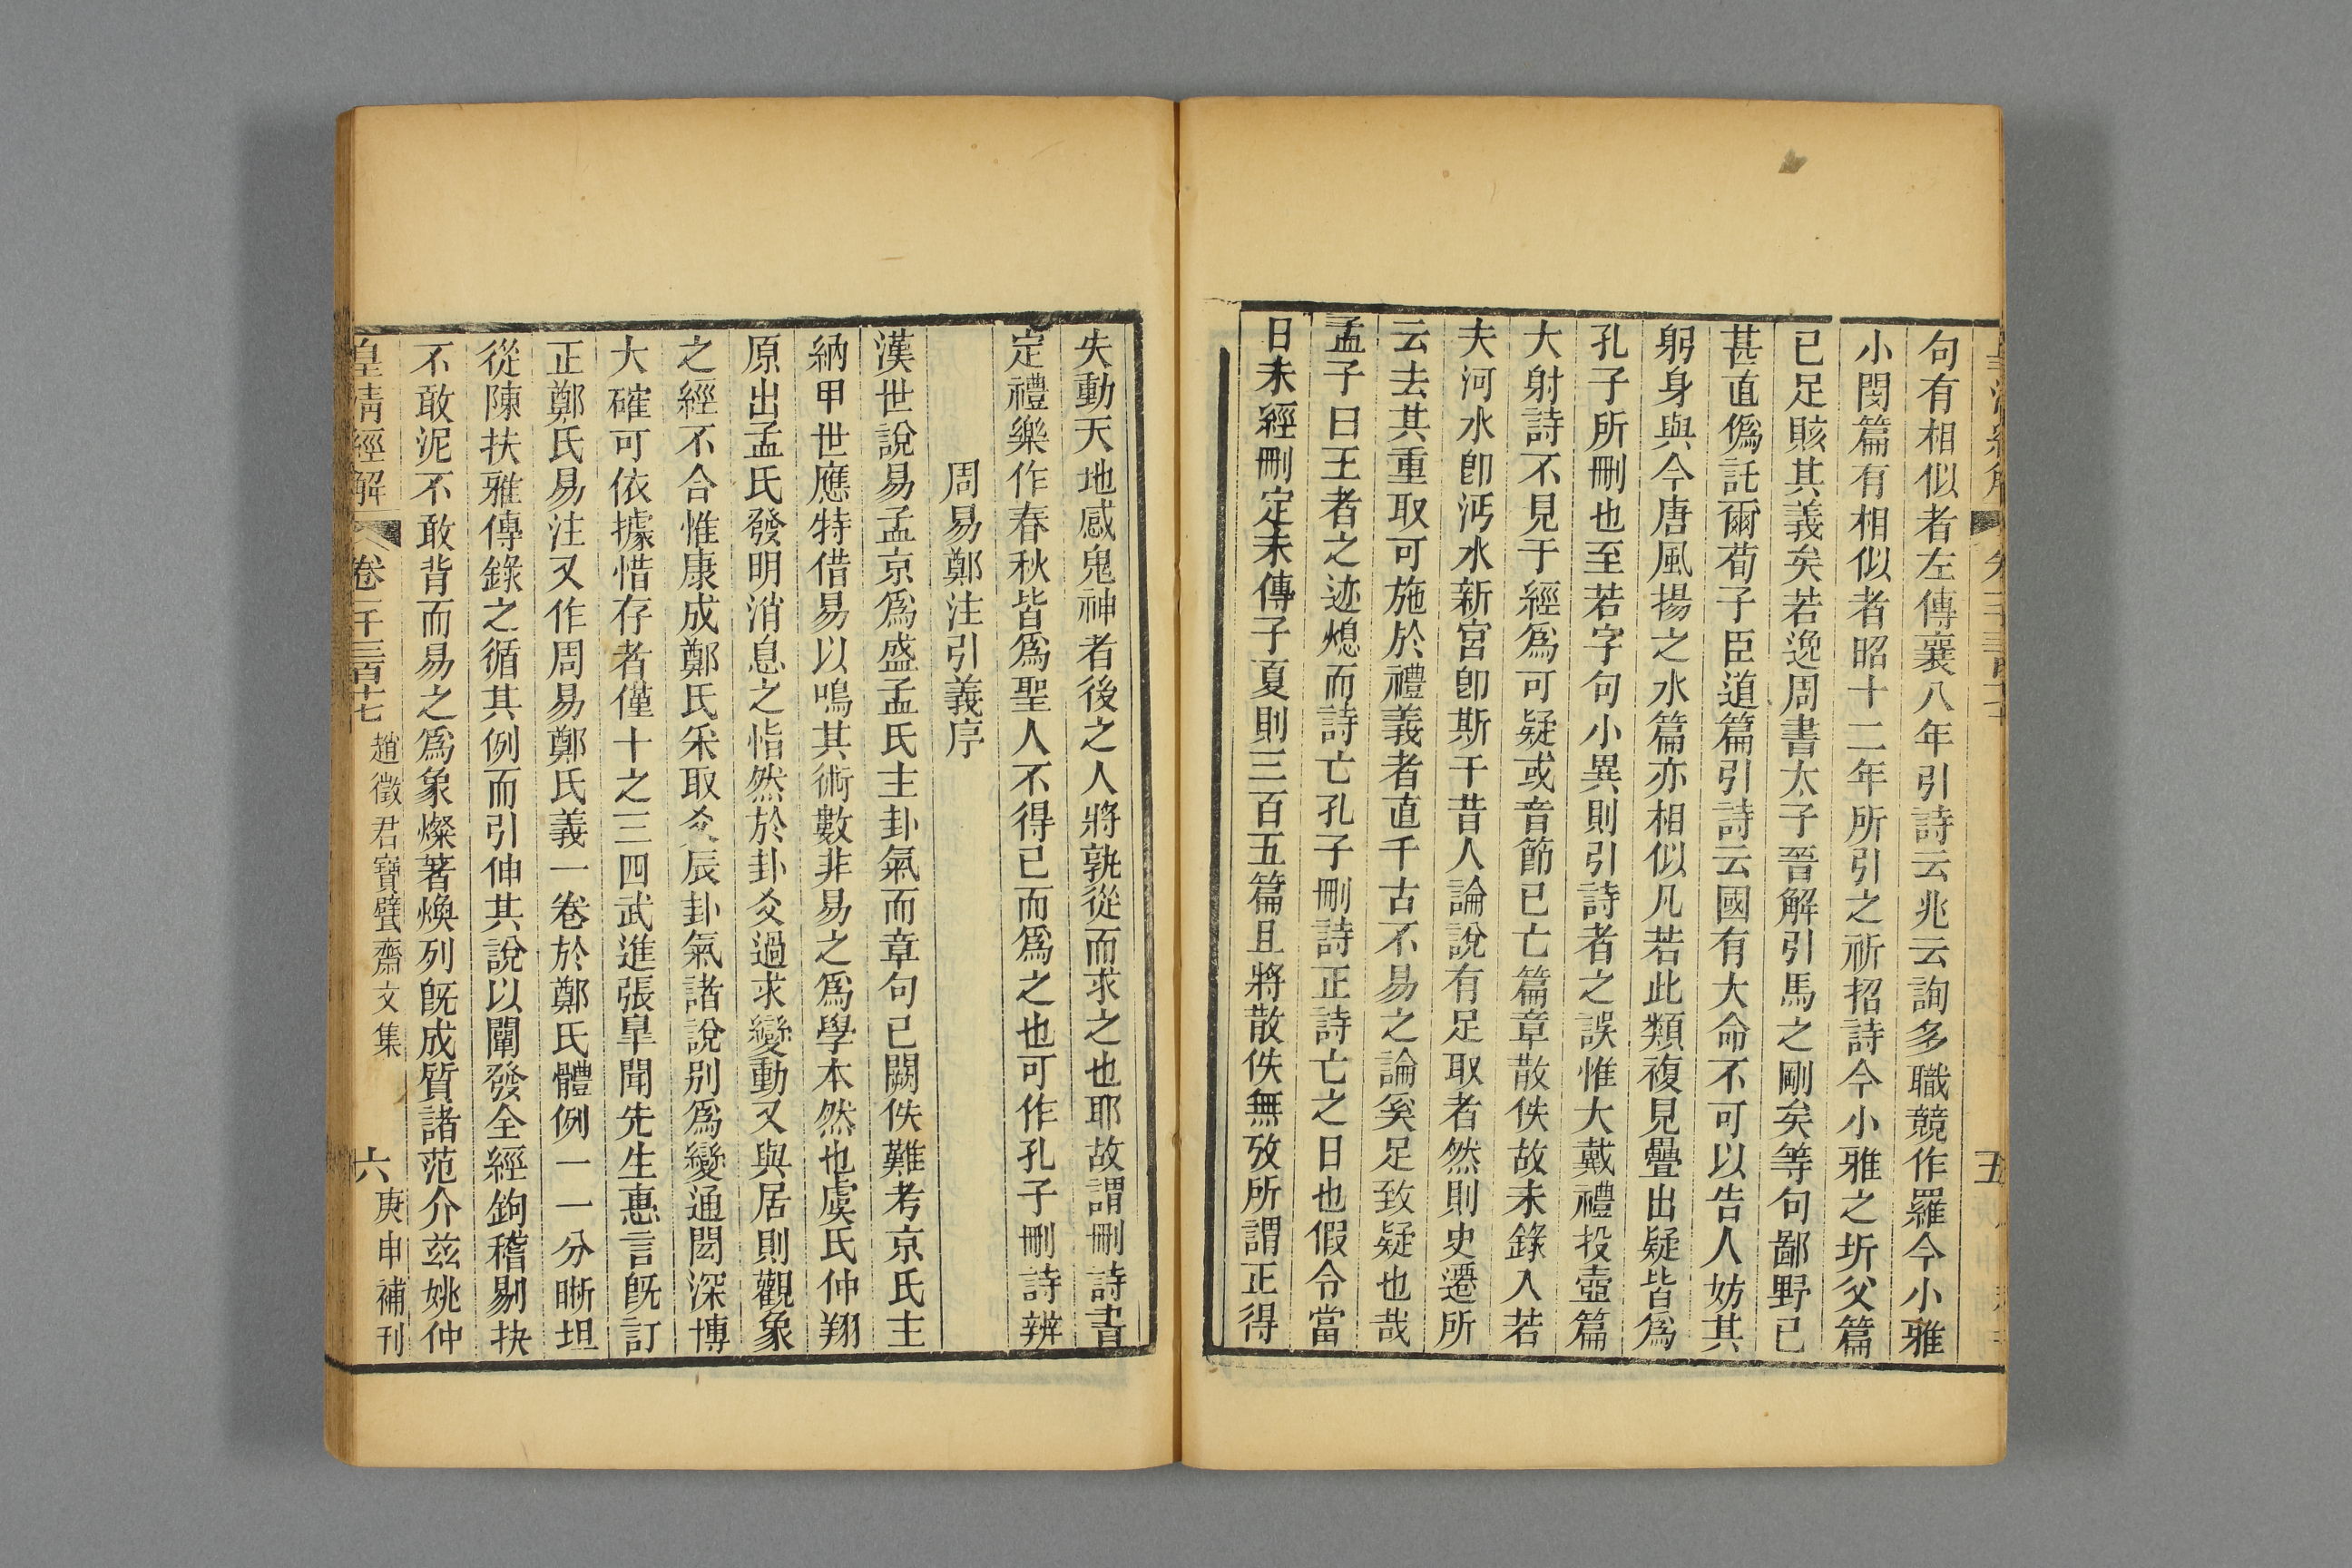 句有相似者左傳襄八年引詩云兆云詢多職競作羅今小雅
小閔篇有相似者昭十二年所引之祈招詩今小雅之圻父篇
已足賅其義矣若逸周書太子晉解引馬之剛矣等句鄙野已
甚直僞託爾荀子臣道篇引詩云國有大命不可以告人妨其
躬身與今唐風揚之水篇亦相似凡若此類複見疊出疑皆爲
孔子所刪也至若字句小異則引詩者之誤惟大戴禮投壺篇
大射詩不見于經爲可疑或音節已亡篇章散佚故未錄入若
夫河水卽沔水新宮卽斯干昔人論說有足取者然則史遷所
云去其重取可施於禮義者直千古不易之論奚足致疑也哉
孟子曰王者之迹熄而詩亡孔子刪詩正詩亡之日也假令當
日未經刪定未傳子夏則三百五篇且將散佚無攷所謂正得
失動天地感鬼神者後之人將孰從而求之也耶故謂刪詩書
定禮樂作春秋皆爲聖人不得已而爲之也可作孔子刪詩辨
周易鄭注引義序
漢世說易孟京爲盛孟氏主卦氣而章句已闕佚難考京氏主
納甲世應特借易以鳴其術數非易之爲學本然也虞氏仲翔
原出孟氏發明消息之恉然於卦爻過求變動又與居則觀象
之經不合惟康成鄭氏采取爻辰卦氣諸說別爲變通閎深博
大確可依據惜存者僅十之三四武進張皐聞先生惠言旣訂
正鄭氏易注又作周易鄭氏義一卷於鄭氏體例一一分晰坦
從陳扶雅傳錄之循其例而引伸其說以闡發全經鉤稽剔抉
不敢泥不敢背而易之爲象燦著煥列旣成質諸范介茲姚仲
皇清經解 卷一千三百十七 趙徵君寶甓齋文集 六 庚申補刊